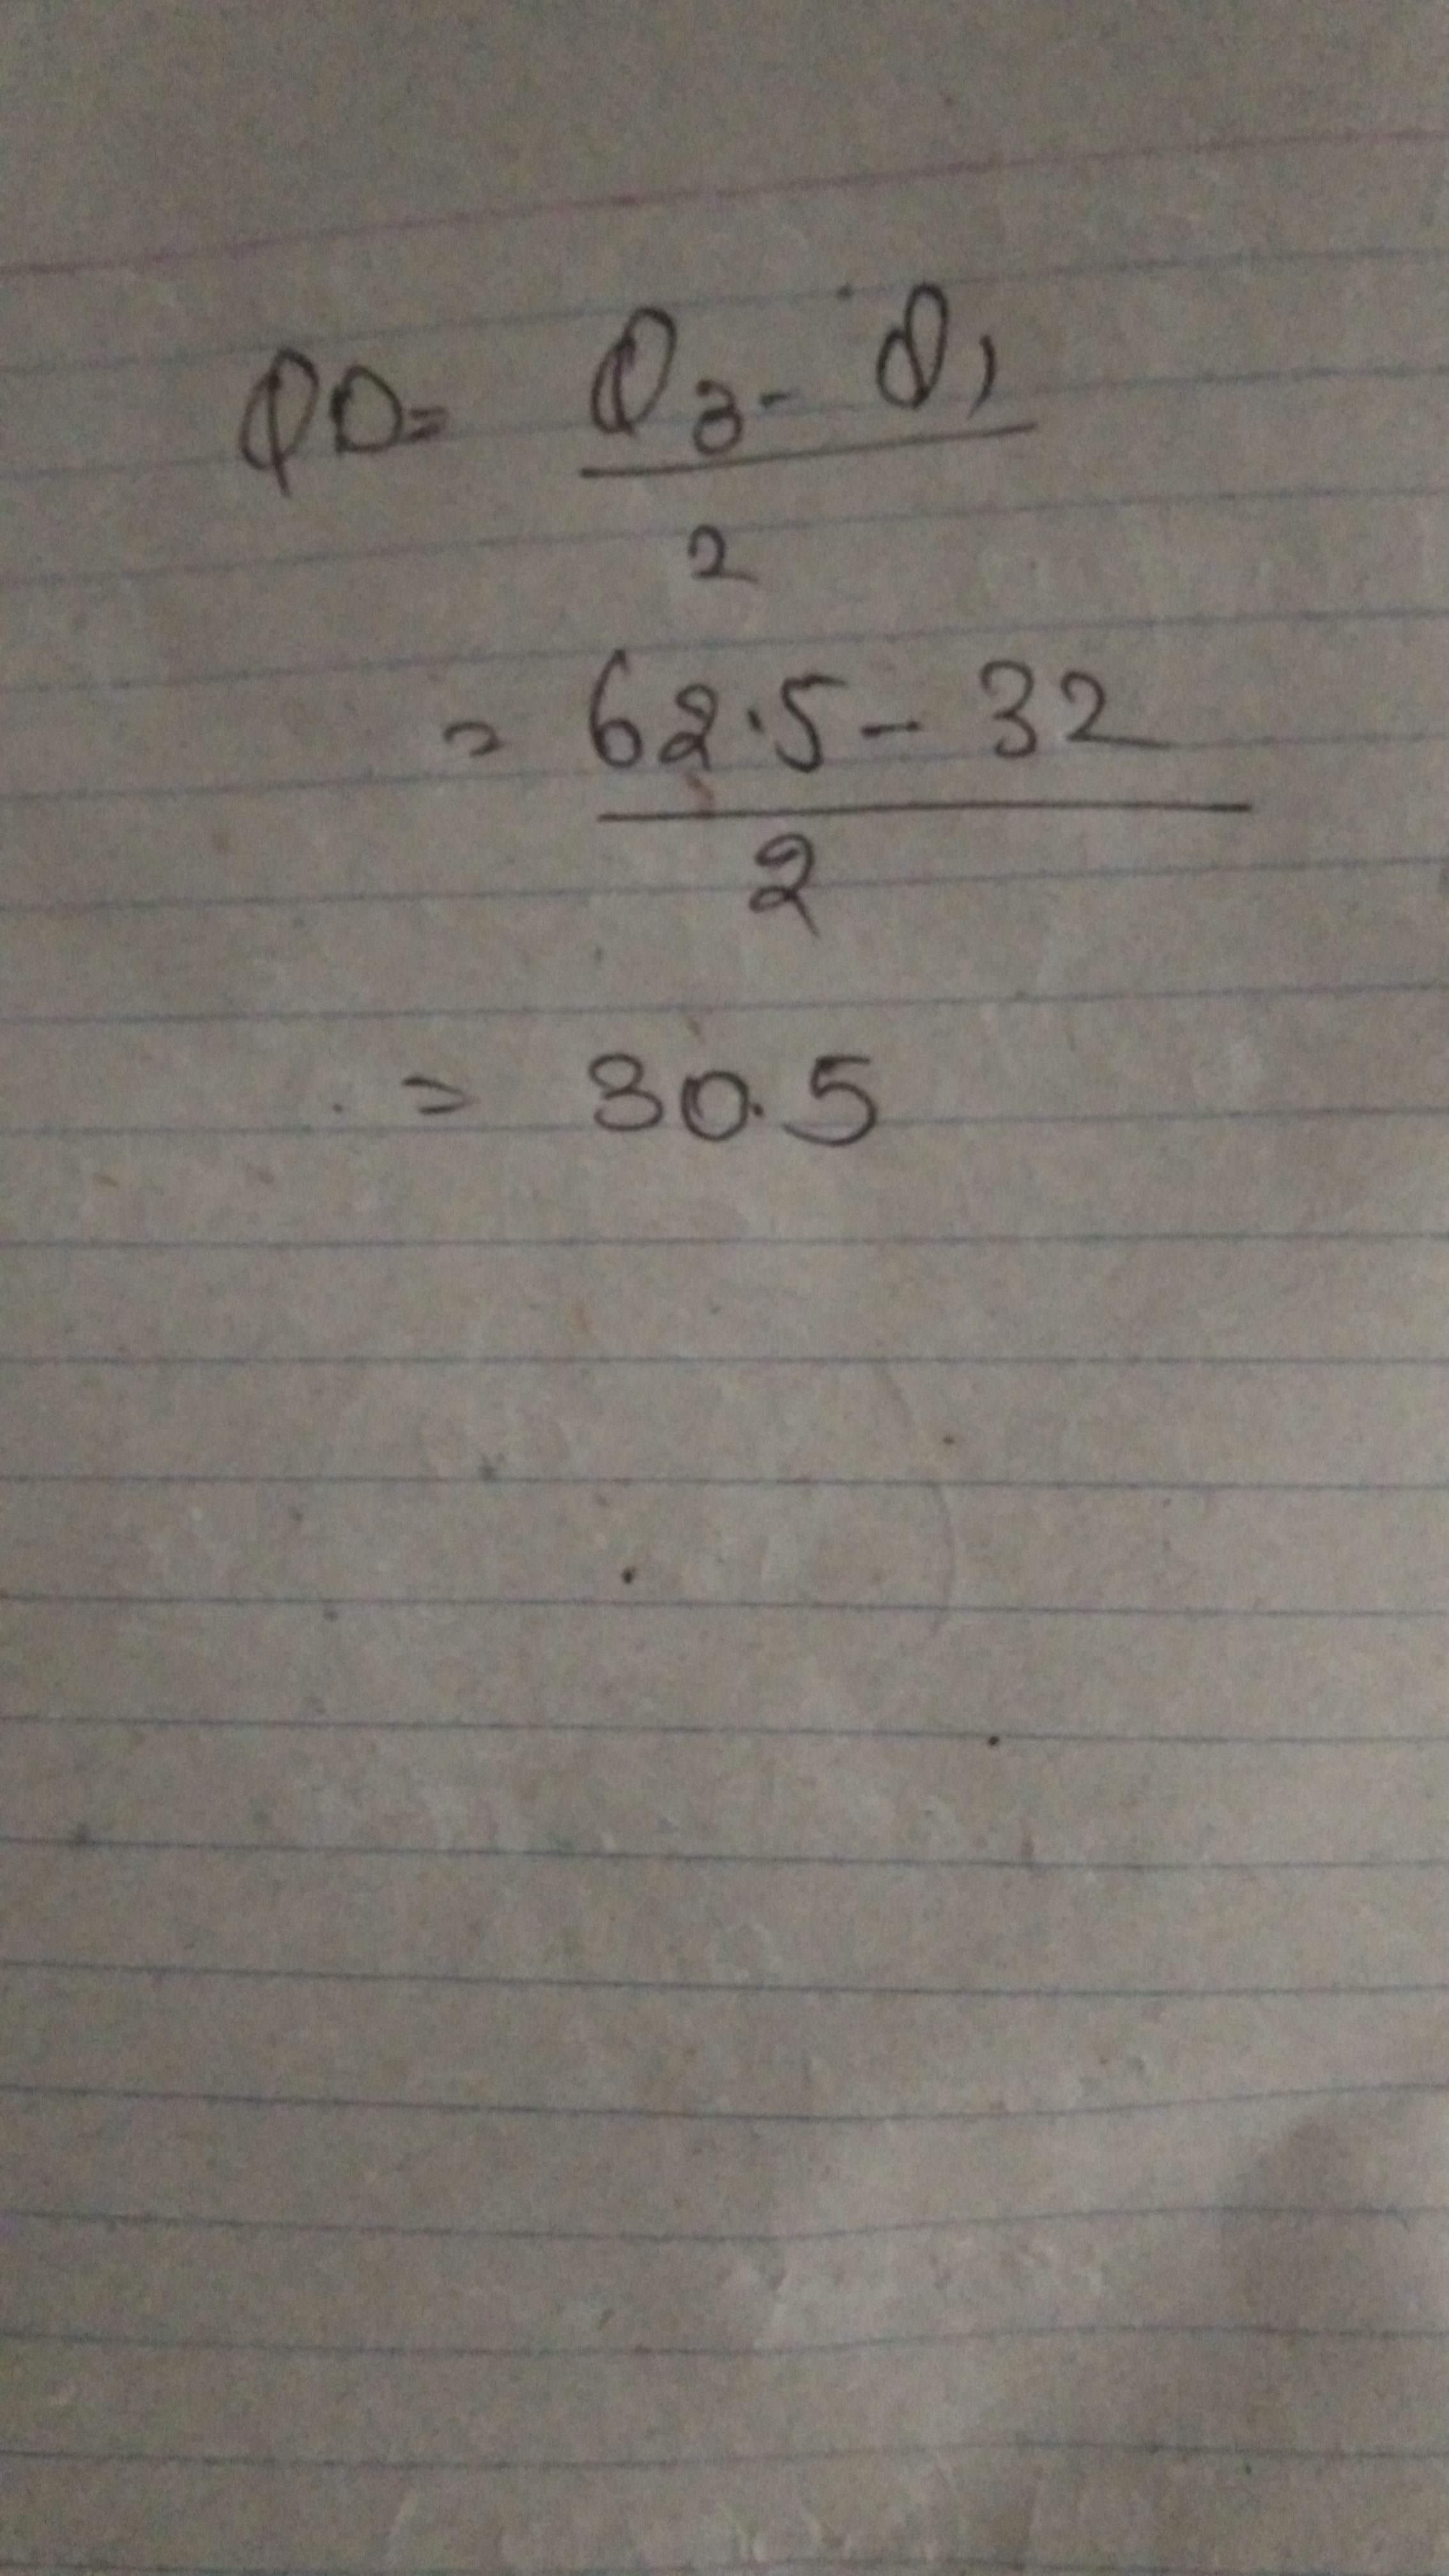 QD = Q3 - Q1
2
= 62.5 - 32
2
= 30.5